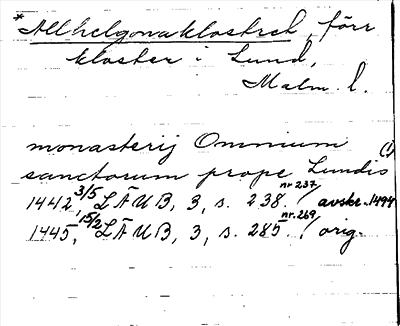 *Allhelgonaklostret, förr
kloster i Lund,
Malm. l.
monasterij Omnium (!)
sanctorum prope Lundis
1442 3/5, LÄUB, 3, s. 238. nr 237/ avskr. 1494
1445, 15/2 LÄUB, 3, s. 285. nr. 269/ orig.